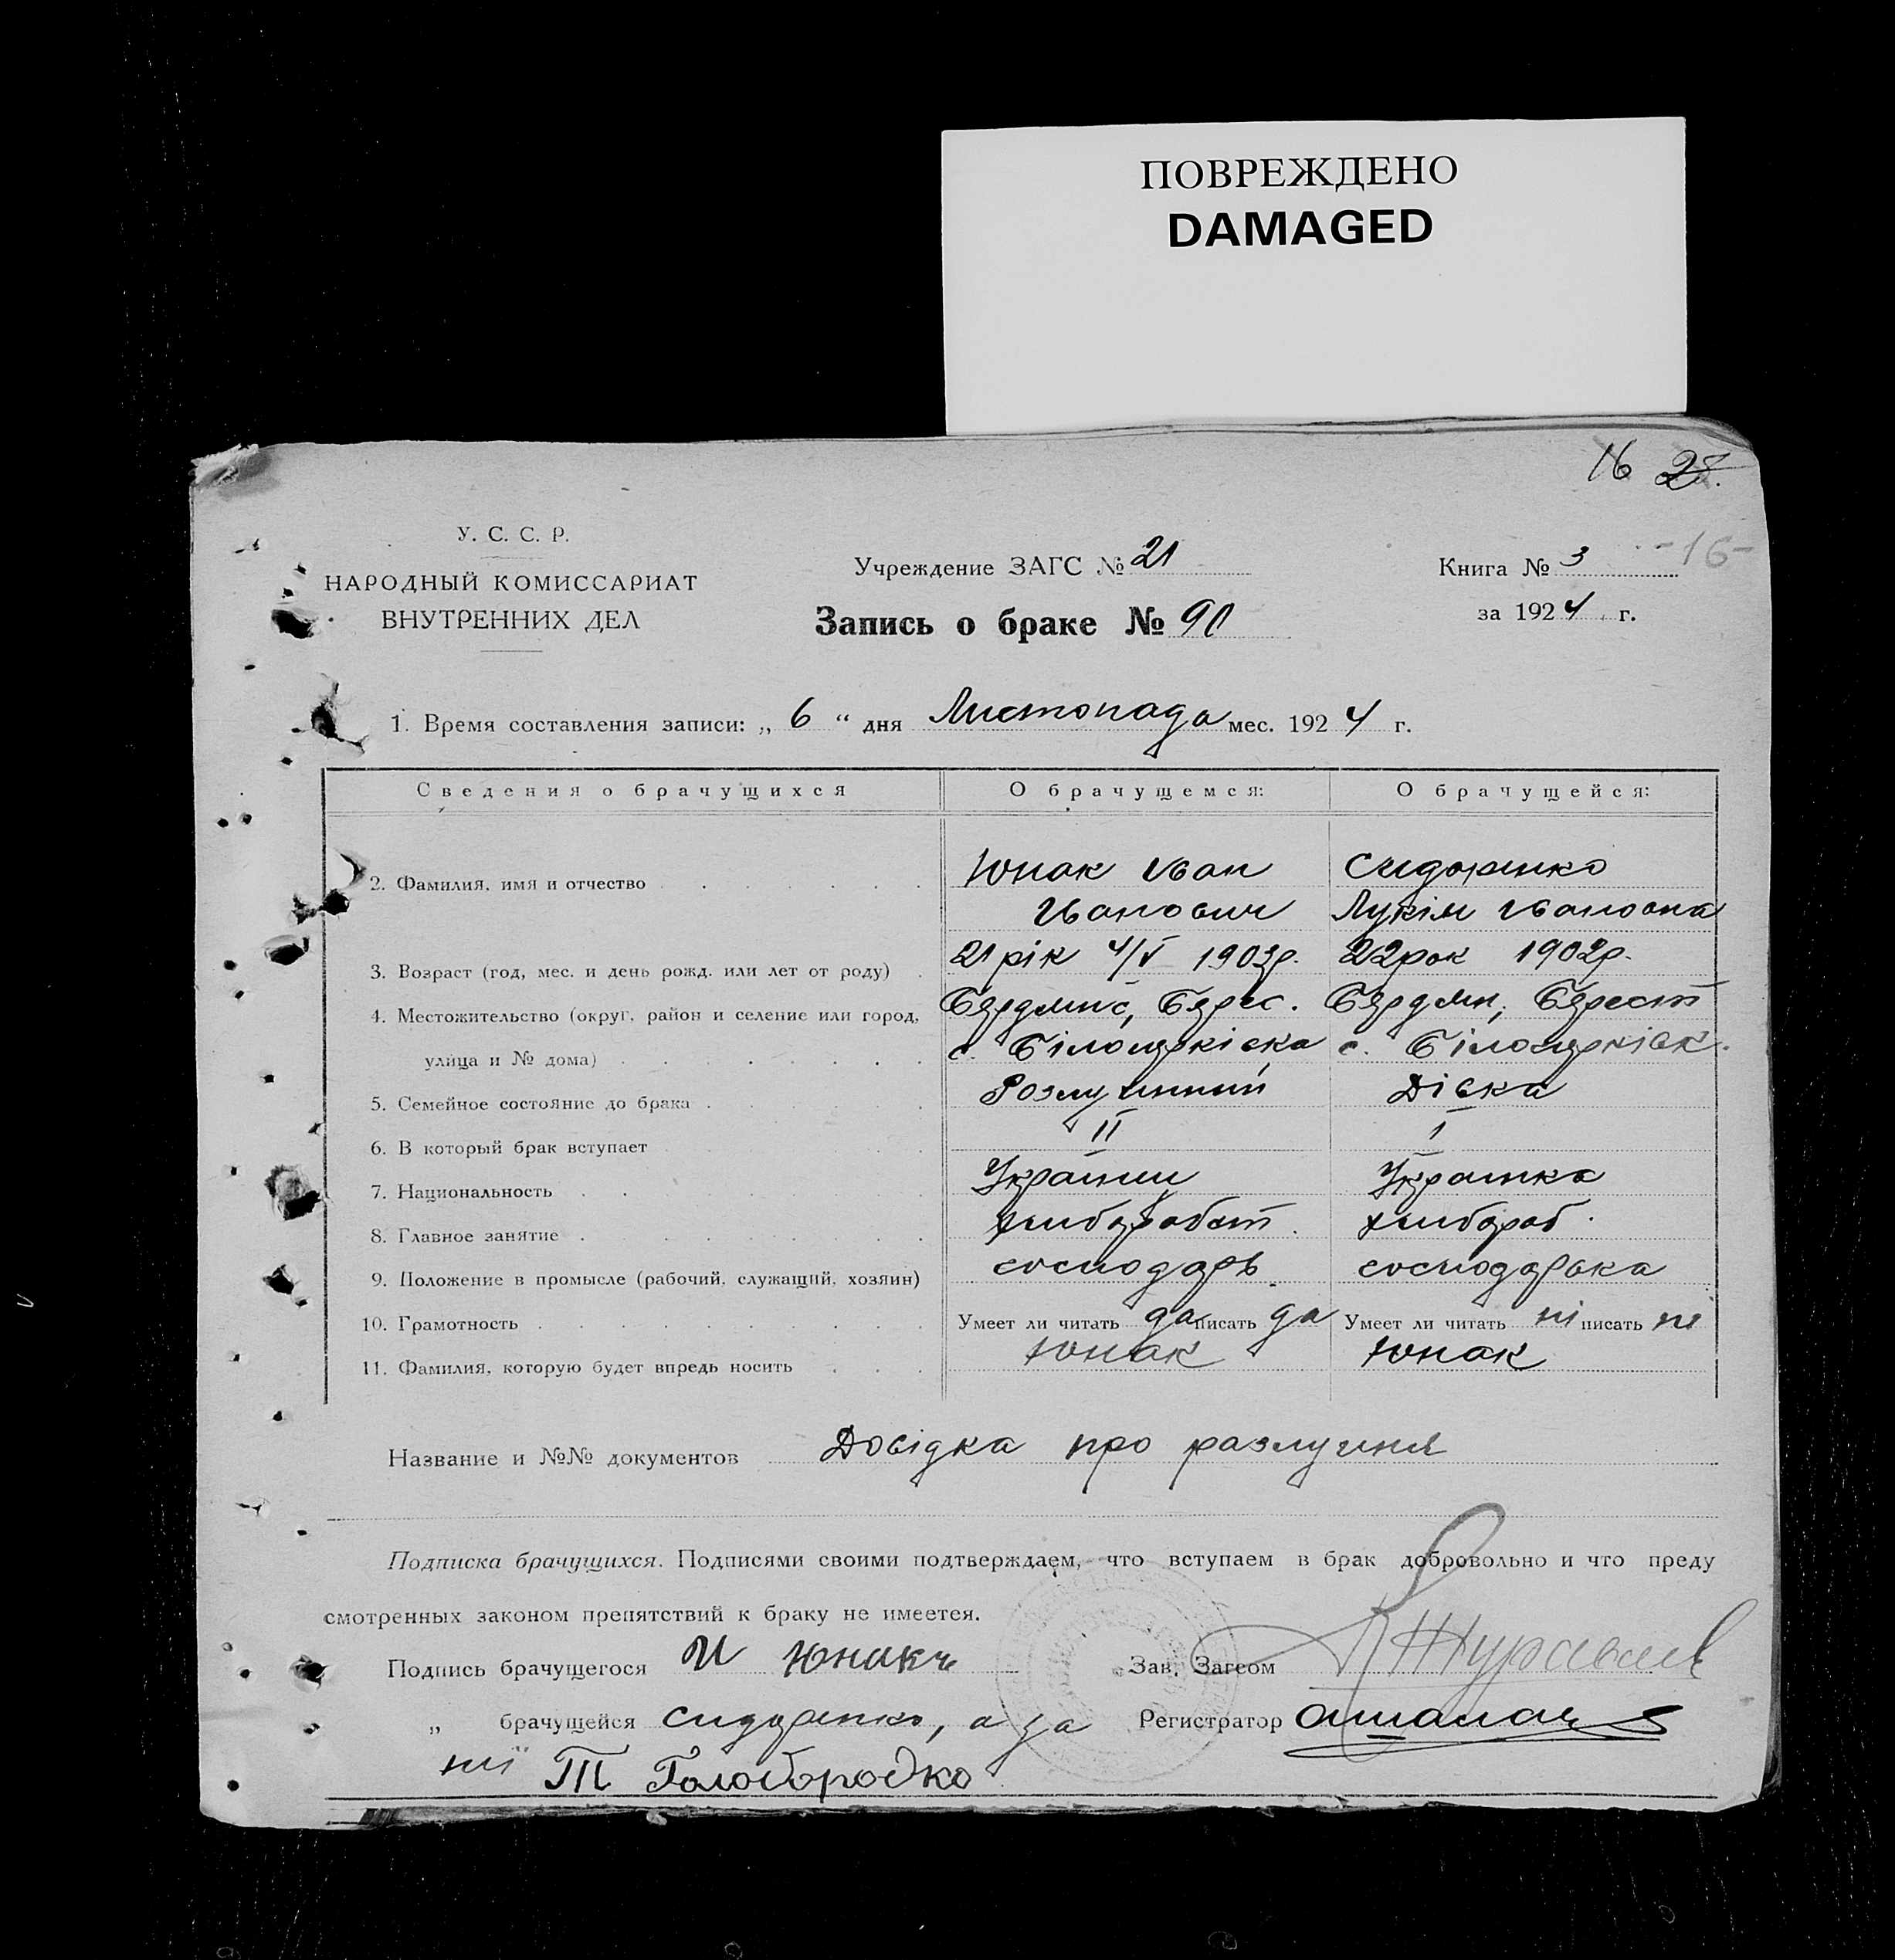 ПОВРЕЖДЕНО
DAMAGED
16 28.
-16-
У. С. С. Р.
НАРОДНЫЙ КОМИССАРИАТ
ВНУТРЕННИХ ДЕЛ
Учреждение ЗАГС № 21
Запись о браке № 90
Книга № 3
за 1924 г.
1. Время составления записи: „ 6 “ дня Листопада мес. 1924 г.
Сведения о брачущихся О брачущемся: О брачущейся:
2. Фамилия, имя и отчество Юнак Іван Сидоренко
Іванович Лукія Івановна
3. Возраст (год, мес. и день рожд. или лет от роду) 21 рік 4/V 1903р. 22 рок 1902р.
4. Местожительство (округ, район и селение или город, Бярдянс, Бярес. Бярдян, Бярест
улица и № дома) с. Білоцрківка с. Білоцрківк.
5. Семейное состояние до брака Розлучиний Дівка
6. В который брак вступает II I
7. Национальность Українц Українка
8. Главное занятие хлибаробст. хлибароб.
9. Положение в промысле (рабочий, служащий, хозяин) господарь господарька
10. Грамотность Умеет ли читать да писать да Умеет ли читать ні писать ні
11. Фамилия, которую будет впредь носить Юнак Юнак
Название и №№ документов Довідка про разлучиня
Подписка брачущихся. Подписями своими подтверждаем, что вступаем в брак добровольно и что преду
смотренных законом препятствий к браку не имеется.
Подпись брачущегося И Юнакъ Зав. Загсом Журавель
„ брачущейся Сидоренко, а за Регистратор
ниї Т Голобородко